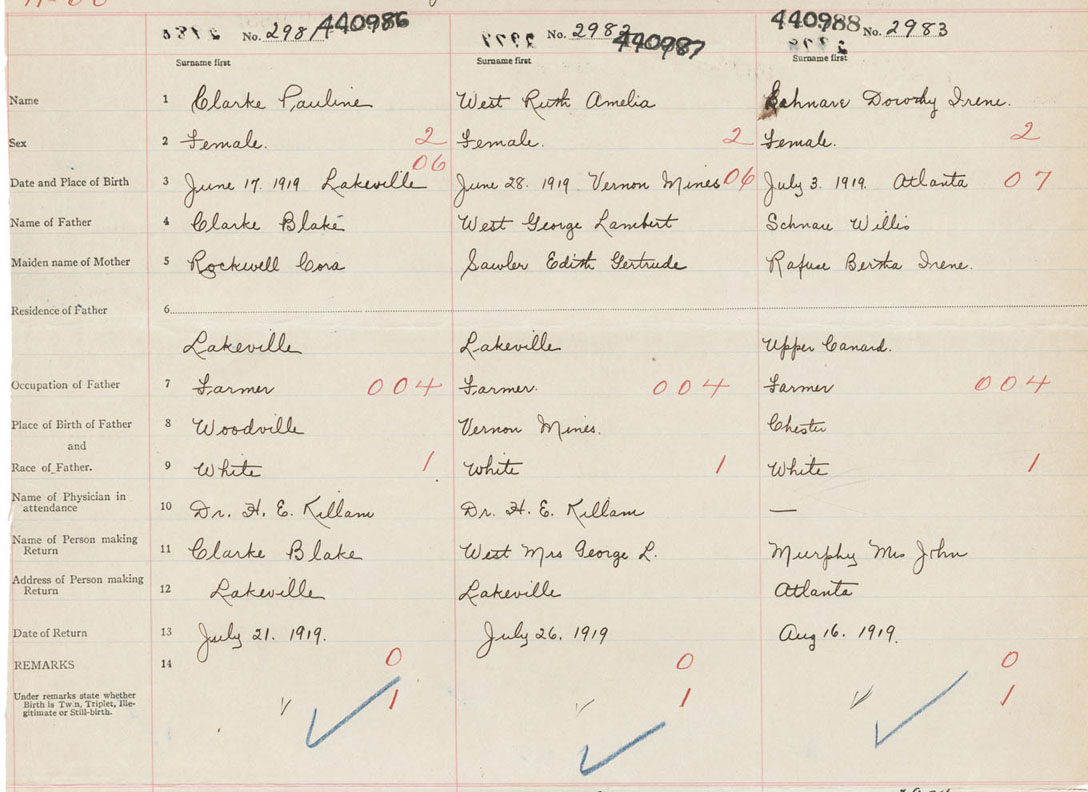 440986 440988
No. 2981 No. 2982 440987 No. 2983
Surname first Surname first Surname first
Name 1 Clarke Pauline West Ruth Amelia Schnare Dorothy Irene.
Sex 2 Female. 2 Female. 2 Female. 2
06
Date and Place of Birth 3 June 17. 1919 Lakeville June 28. 1919 Vernon Mines 06 July 3. 1919. Atlanta 07
Name of Father 4 Clarke Blake West George Lambert Schnare Willis
Maiden name of Mother 5 Rockwell Cora Sawler Edith Gertrude Rafuse Bertha Irene.
Residence of Father 6
Lakeville Lakeville Upper Canard.
Occupation of Father 7 Farmer 004 Farmer. 004 Farmer 004
Place of Birth of Father 8 Woodville Vernon Mines. Chester
and
Race of Father. 9 White 1 White 1 White 1
Name of Physician in
attendance 10 Dr. H. E. Killam Dr. H. E. Killam —
Name of Person making
Return 11 Clarke Blake West Mrs George L. Murphy Mrs John
Address of Person making
Return 12 Lakeville Lakeville Atlanta
Date of Return 13 July 21. 1919. July 26. 1919 Aug 16. 1919.
REMARKS 14 0 0 0
Under remarks state whether
Birth is Twin, Triplet, Ille-
gitimate or Still-birth. 1 1 1